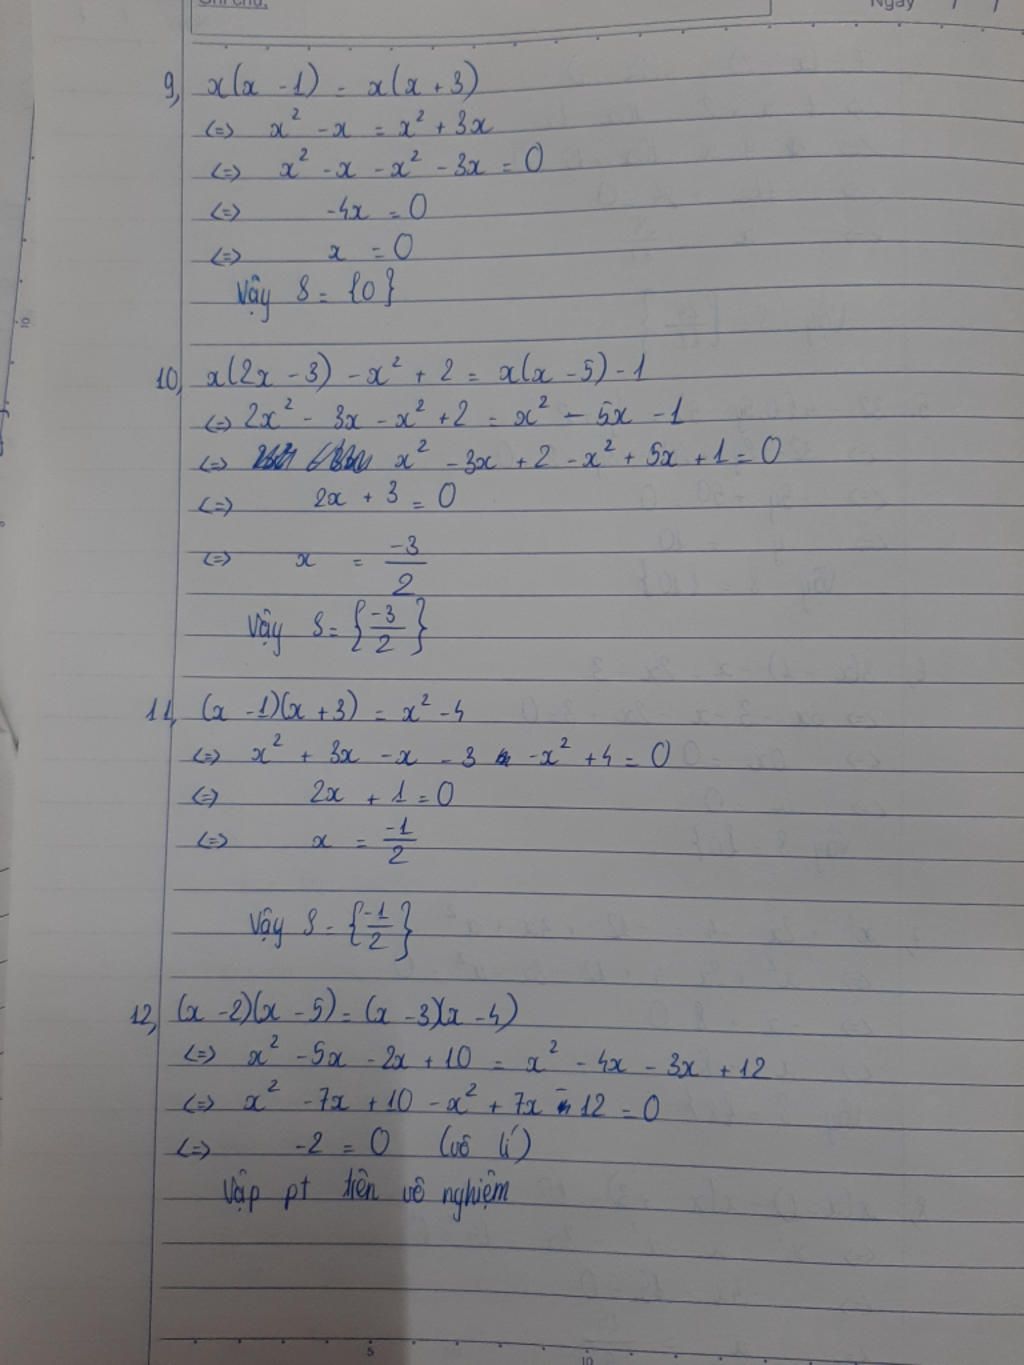 Ngày / /
9, x(x - 1) = x(x + 3)
<=> x² - x = x² + 3x
<=> x² - x - x² - 3x = 0
<=> -4x = 0
<=> x = 0
Vậy S = {0}
10, x(2x - 3) - x² + 2 = x(x - 5) - 1
<=> 2x² - 3x - x² + 2 = x² - 5x - 1
<=> x² - 3x + 2 - x² + 5x + 1 = 0
<=> 2x + 3 = 0
<=> x = -3/2
Vậy S = {-3/2}
11, (x - 1)(x + 3) = x² - 4
<=> x² + 3x - x - 3 - x² + 4 = 0
<=> 2x + 1 = 0
<=> x = -1/2
Vậy S = {-1/2}
12, (x - 2)(x - 5) = (x - 3)(x - 4)
<=> x² - 5x - 2x + 10 = x² - 4x - 3x + 12
<=> x² - 7x + 10 - x² + 7x - 12 = 0
<=> -2 = 0 (vô lí)
Vập pt trên vô nghiệm
5 10